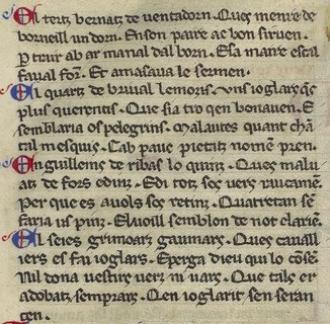 El tertz bernatz de uentadorn. Ques menre de
borneill un dorn. Enson paire ac bon siruen.
P trair ab ar manal dal born. Esa maire escal
faual forn. Et amasaua le sermen.
El quartz de briual lemozis. Uns ioglars qes
plus querentis. Que sia tro qen bonauen. E
semblaria us pelegris. Malautes quant chan
tal mesquis. Cab pauc pietatz nomen pren.
En guillems de ribas lo quintz. Ques maluatz
de fors edinz. Edi totz sos uers raucamen.
Per que es auols sos retinz. Quatretan se
faria us pinz. Eluoill semblon de not clarien.
El seies grimoartz gaumars. Ques cauall
iers es fai ioglars. Eperga dieu qui lo cosen.
Nil dona uestirs uertz ni uars. Que tals er
adobatz semprars. Qen ioglarit sen seran
cen.